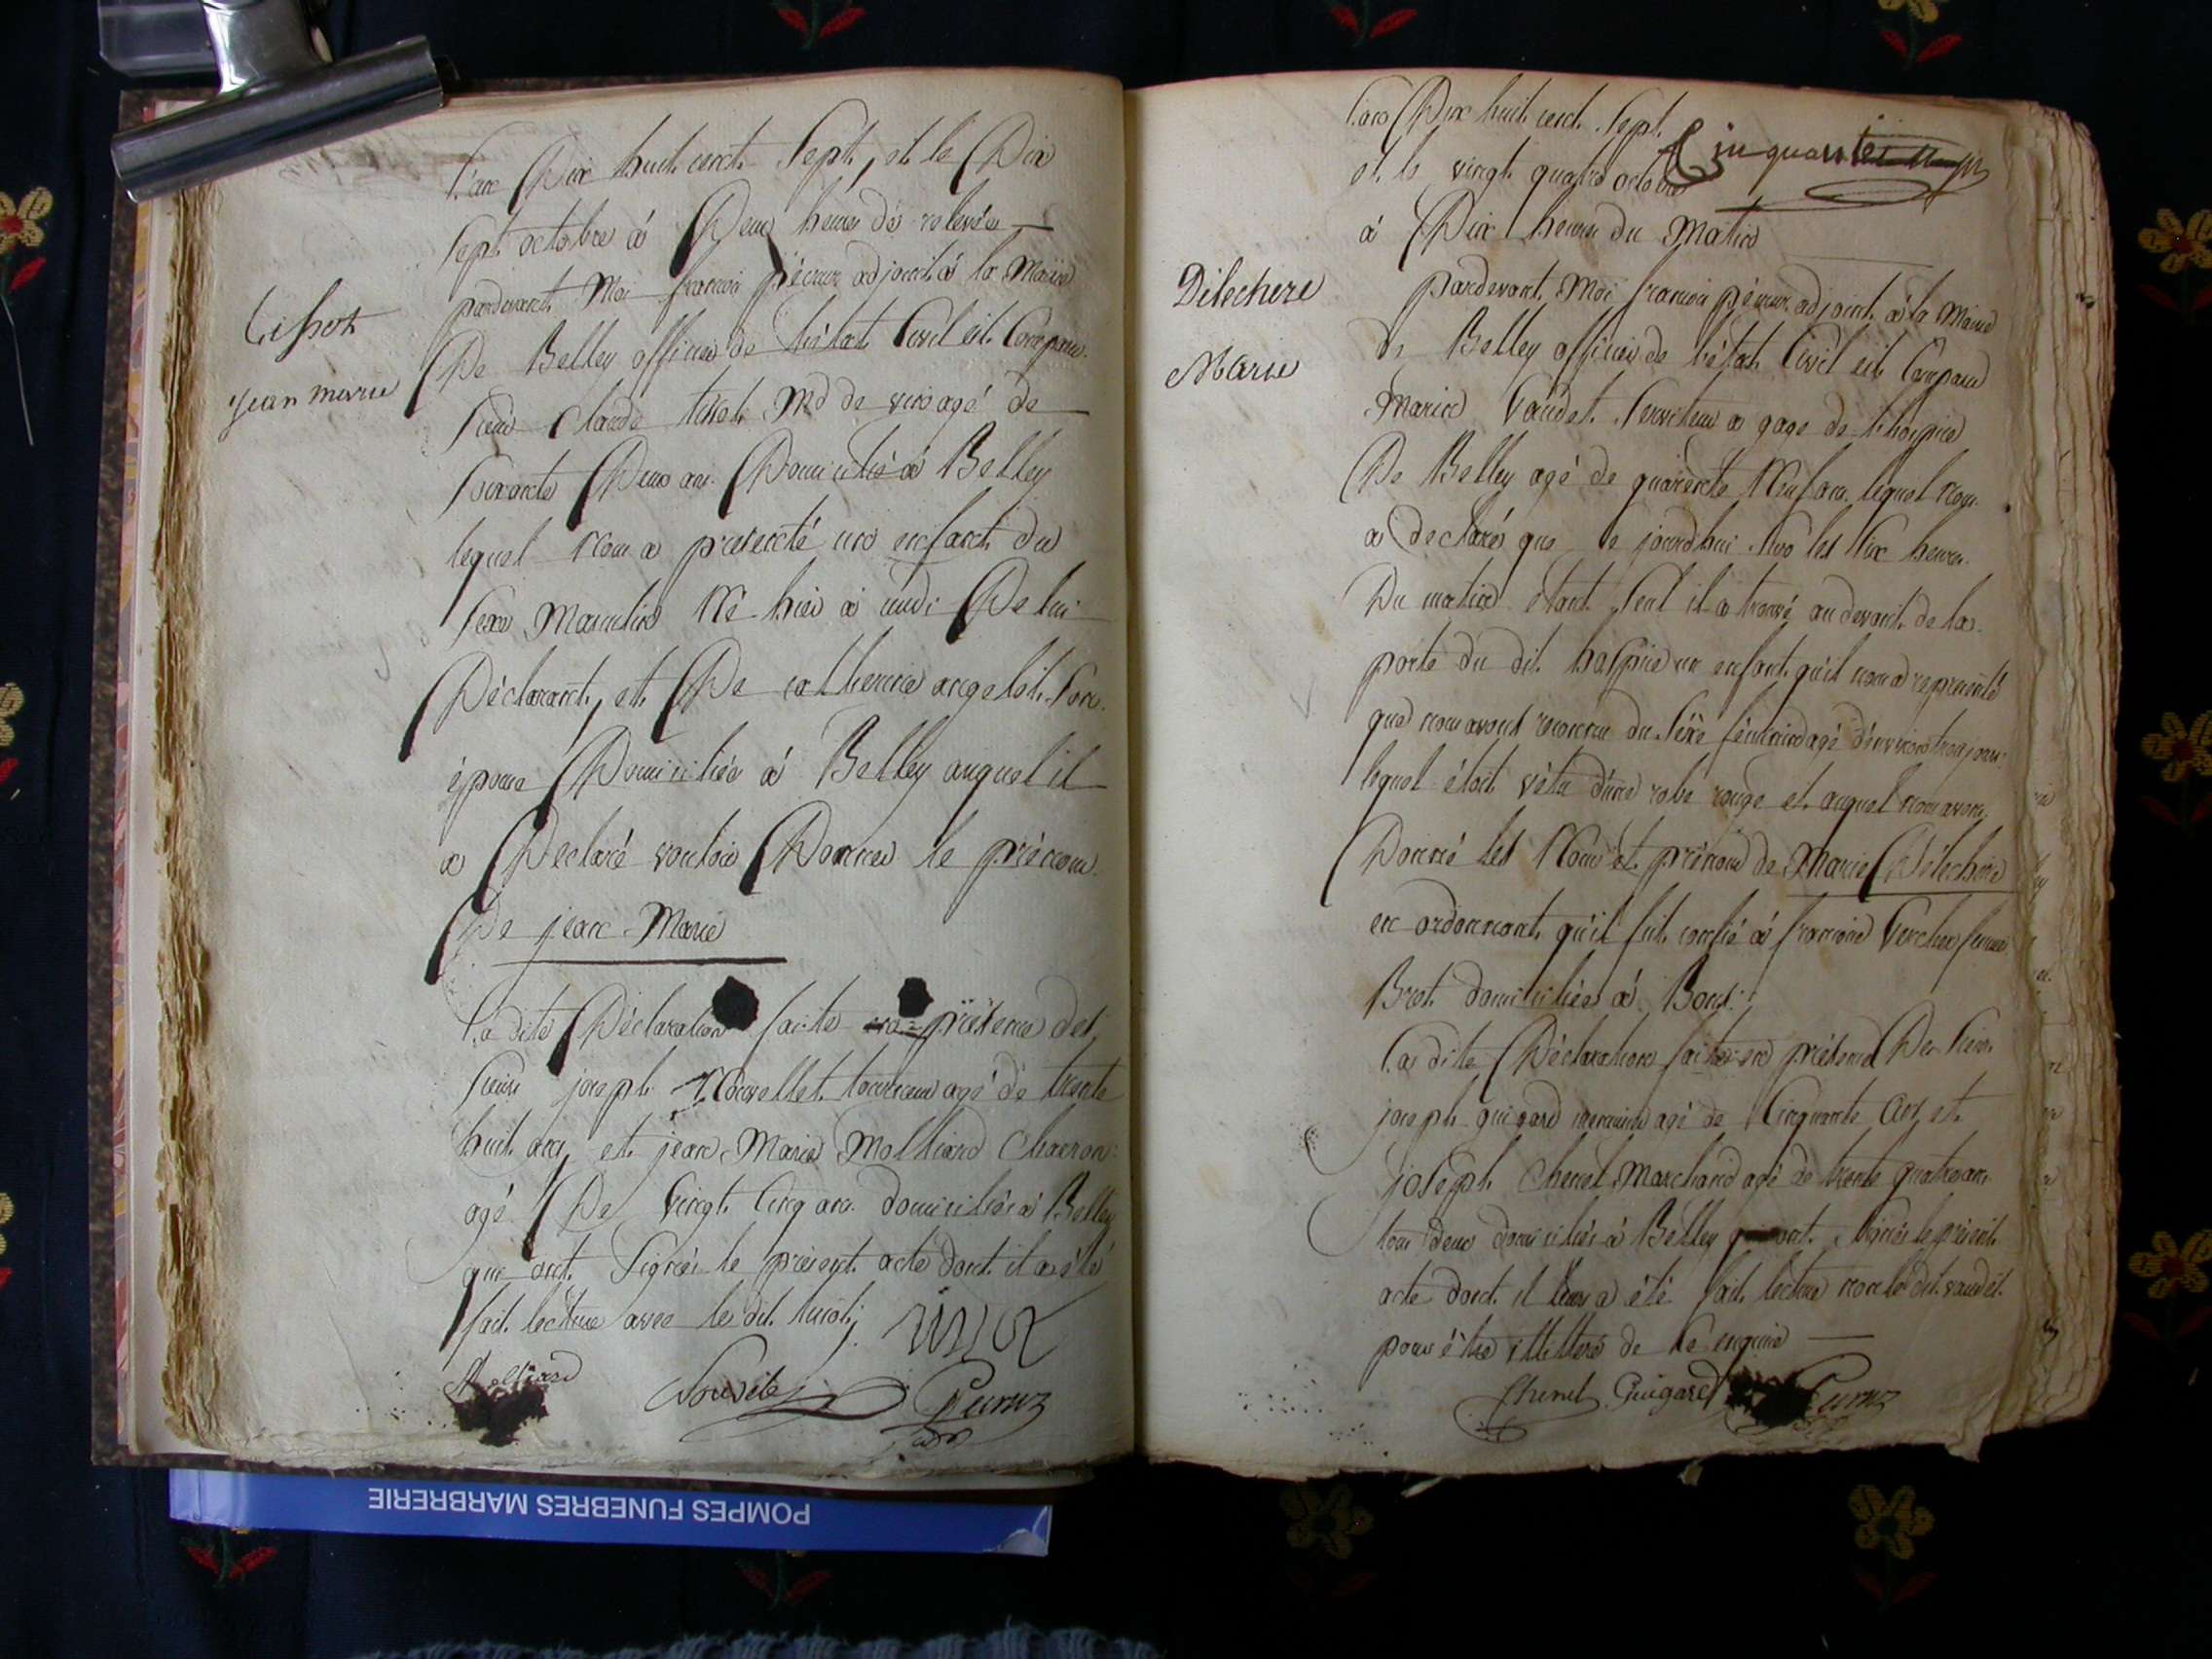 L'an Dix huit cent Sept, et le Dix
Sept octobre à Deux heures de relevée
pardevant Moi françois pécuer adjoint à la Mairie
De Belley officier de l'état Civil est Comparu
Sieur Claude tissot Md de vin agé de
Soixante Deux ans Domicilié à Belley
lequel nous a présenté un enfant du
Sexe Masculin Né hier à midi De lui
Déclarant, et De catherine angelot Son
épouse Domiciliée à Belley auquel il
a Déclaré vouloir Donner le prénom
De jean Marie
La dite Déclaration faite en présence des
Sieurs joseph Nouvellet tourneur agé de trente
huit ans et jean Marie Molliard Charron
agé De Vingt Cinq ans domiciliés à Belley
qui ont Signés le présent acte dont il a été
fait lecture avec le dit tissot
tissot
jean marie
Molliard
L'an Dix huit cent Sept
Cinquante
et le vingt quatre octobre
à Dix heures du Matin
Délechère
Marie
pardevant Moi françois pécuer adjoint à la Mairie
de Belley officier de l'état Civil est Comparu
Marin Vaudet Serviteur a gage de l'hospice
De Belley agé de quarante Neuf ans lequel nous
a déclaré que ce jourdhui sur les Six heures
Du matin étant Seul il a trouvé au devant de la
porte du dit hospice un enfant qu'il nous a représenté
que nous avons reconnu du Sexe féminin agé d'environ trois jours
lequel étoit vêtu d'une robe rouge et auquel nous avons
Donné les Nom et prénom de Marie Délechère
en ordonnant qu'il fut confié à françoise femme
Brot domiciliée à
La dite Déclaration faite en présence Des Sieurs
joseph guigard menuisier agé de Cinquante ans et
joseph Chenel Marchand agé de trente quatre ans
tous deux domiciliés à Belley qui ont Signés le présent
acte dont il leur a été fait lecture non le dit vaudet
pour être illettré de ce enquis
Chenel Guigard
POMPES FUNEBRES MARBRERIE